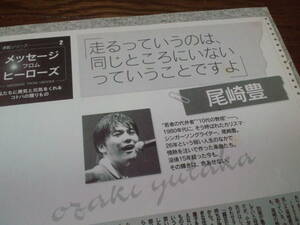 メッセージ
フロム
ヒーローズ
2
私たちに勇気と元気をくれる
コトバの贈りもの
「走るっていうのは、
同じところにいない
っていうことですよ」
尾崎豊
“若者の代弁者”“10代の教祖”──。
1980年代に、そう呼ばれたカリスマ
シンガーソングライター、尾崎豊。
26年という短い人生のなかで
情熱を注いで作った楽曲たち。
没後15年経った今も、
その輝きは、色あせない。
ozaki yutaka